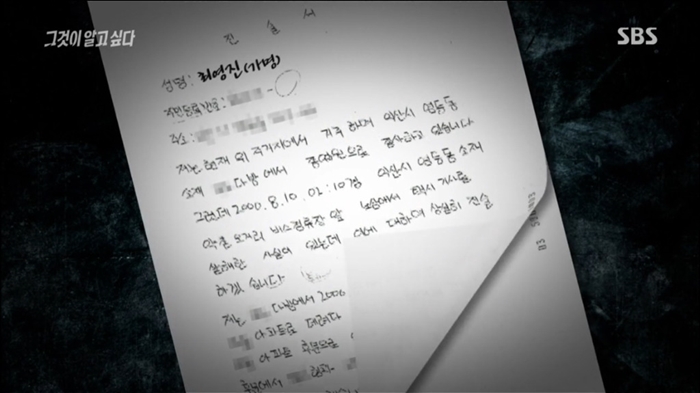 그것이 알고 싶다
SBS
진 술 서
성명 : 최영진(가명)
주민등록번호 : -
주소 :
저는 현재 위 주거지에서 거주 하면서 익산시 영등동
소재 다방에서 종업원으로 종사하고 있습니다
그런데 2000. 8. 10. 02:10경 익산시 영등동 소재
약촌 오거리 버스정류장 앞 노상에서 택시 기사를
살해한 사실이 있는데 이에 대하여 상세히 진술
하겠습니다
저는 다방에서 2000
아파트로 데려다
아파트 후문으로
후문에서